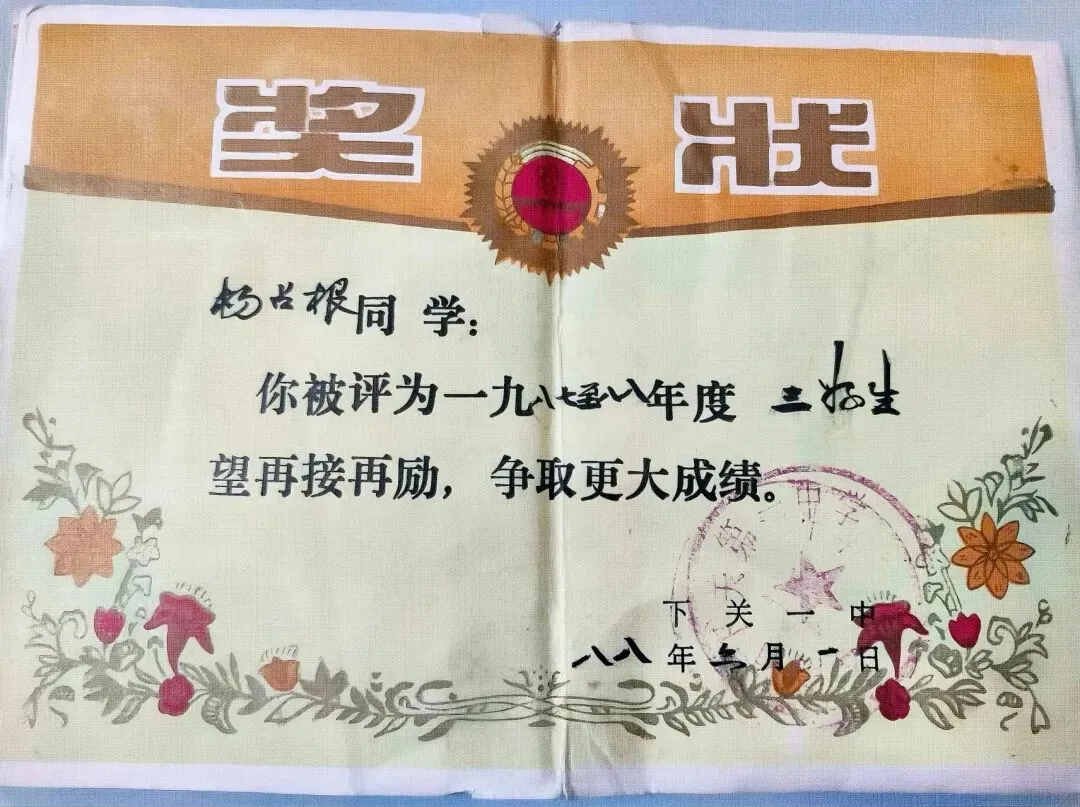 奖 状
杨占根同学:
你被评为一九八七至八八年度 三好生
望再接再励，争取更大成绩。
第一中学
下关一中
八八年六月一日